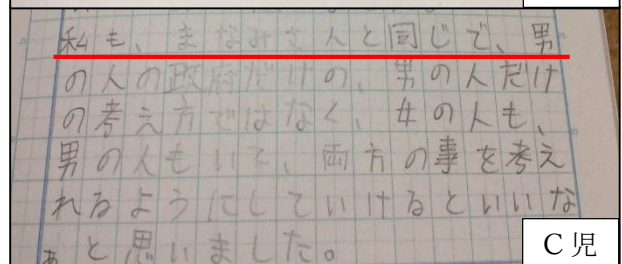 私も、まなみさんと同じで、男
の人の政府だけの、男の人だけ
の考え方ではなく、女の人も、
男の人もいて、両方の事を考え
れるようにしていけるといいな
ぁと思いました。
C児